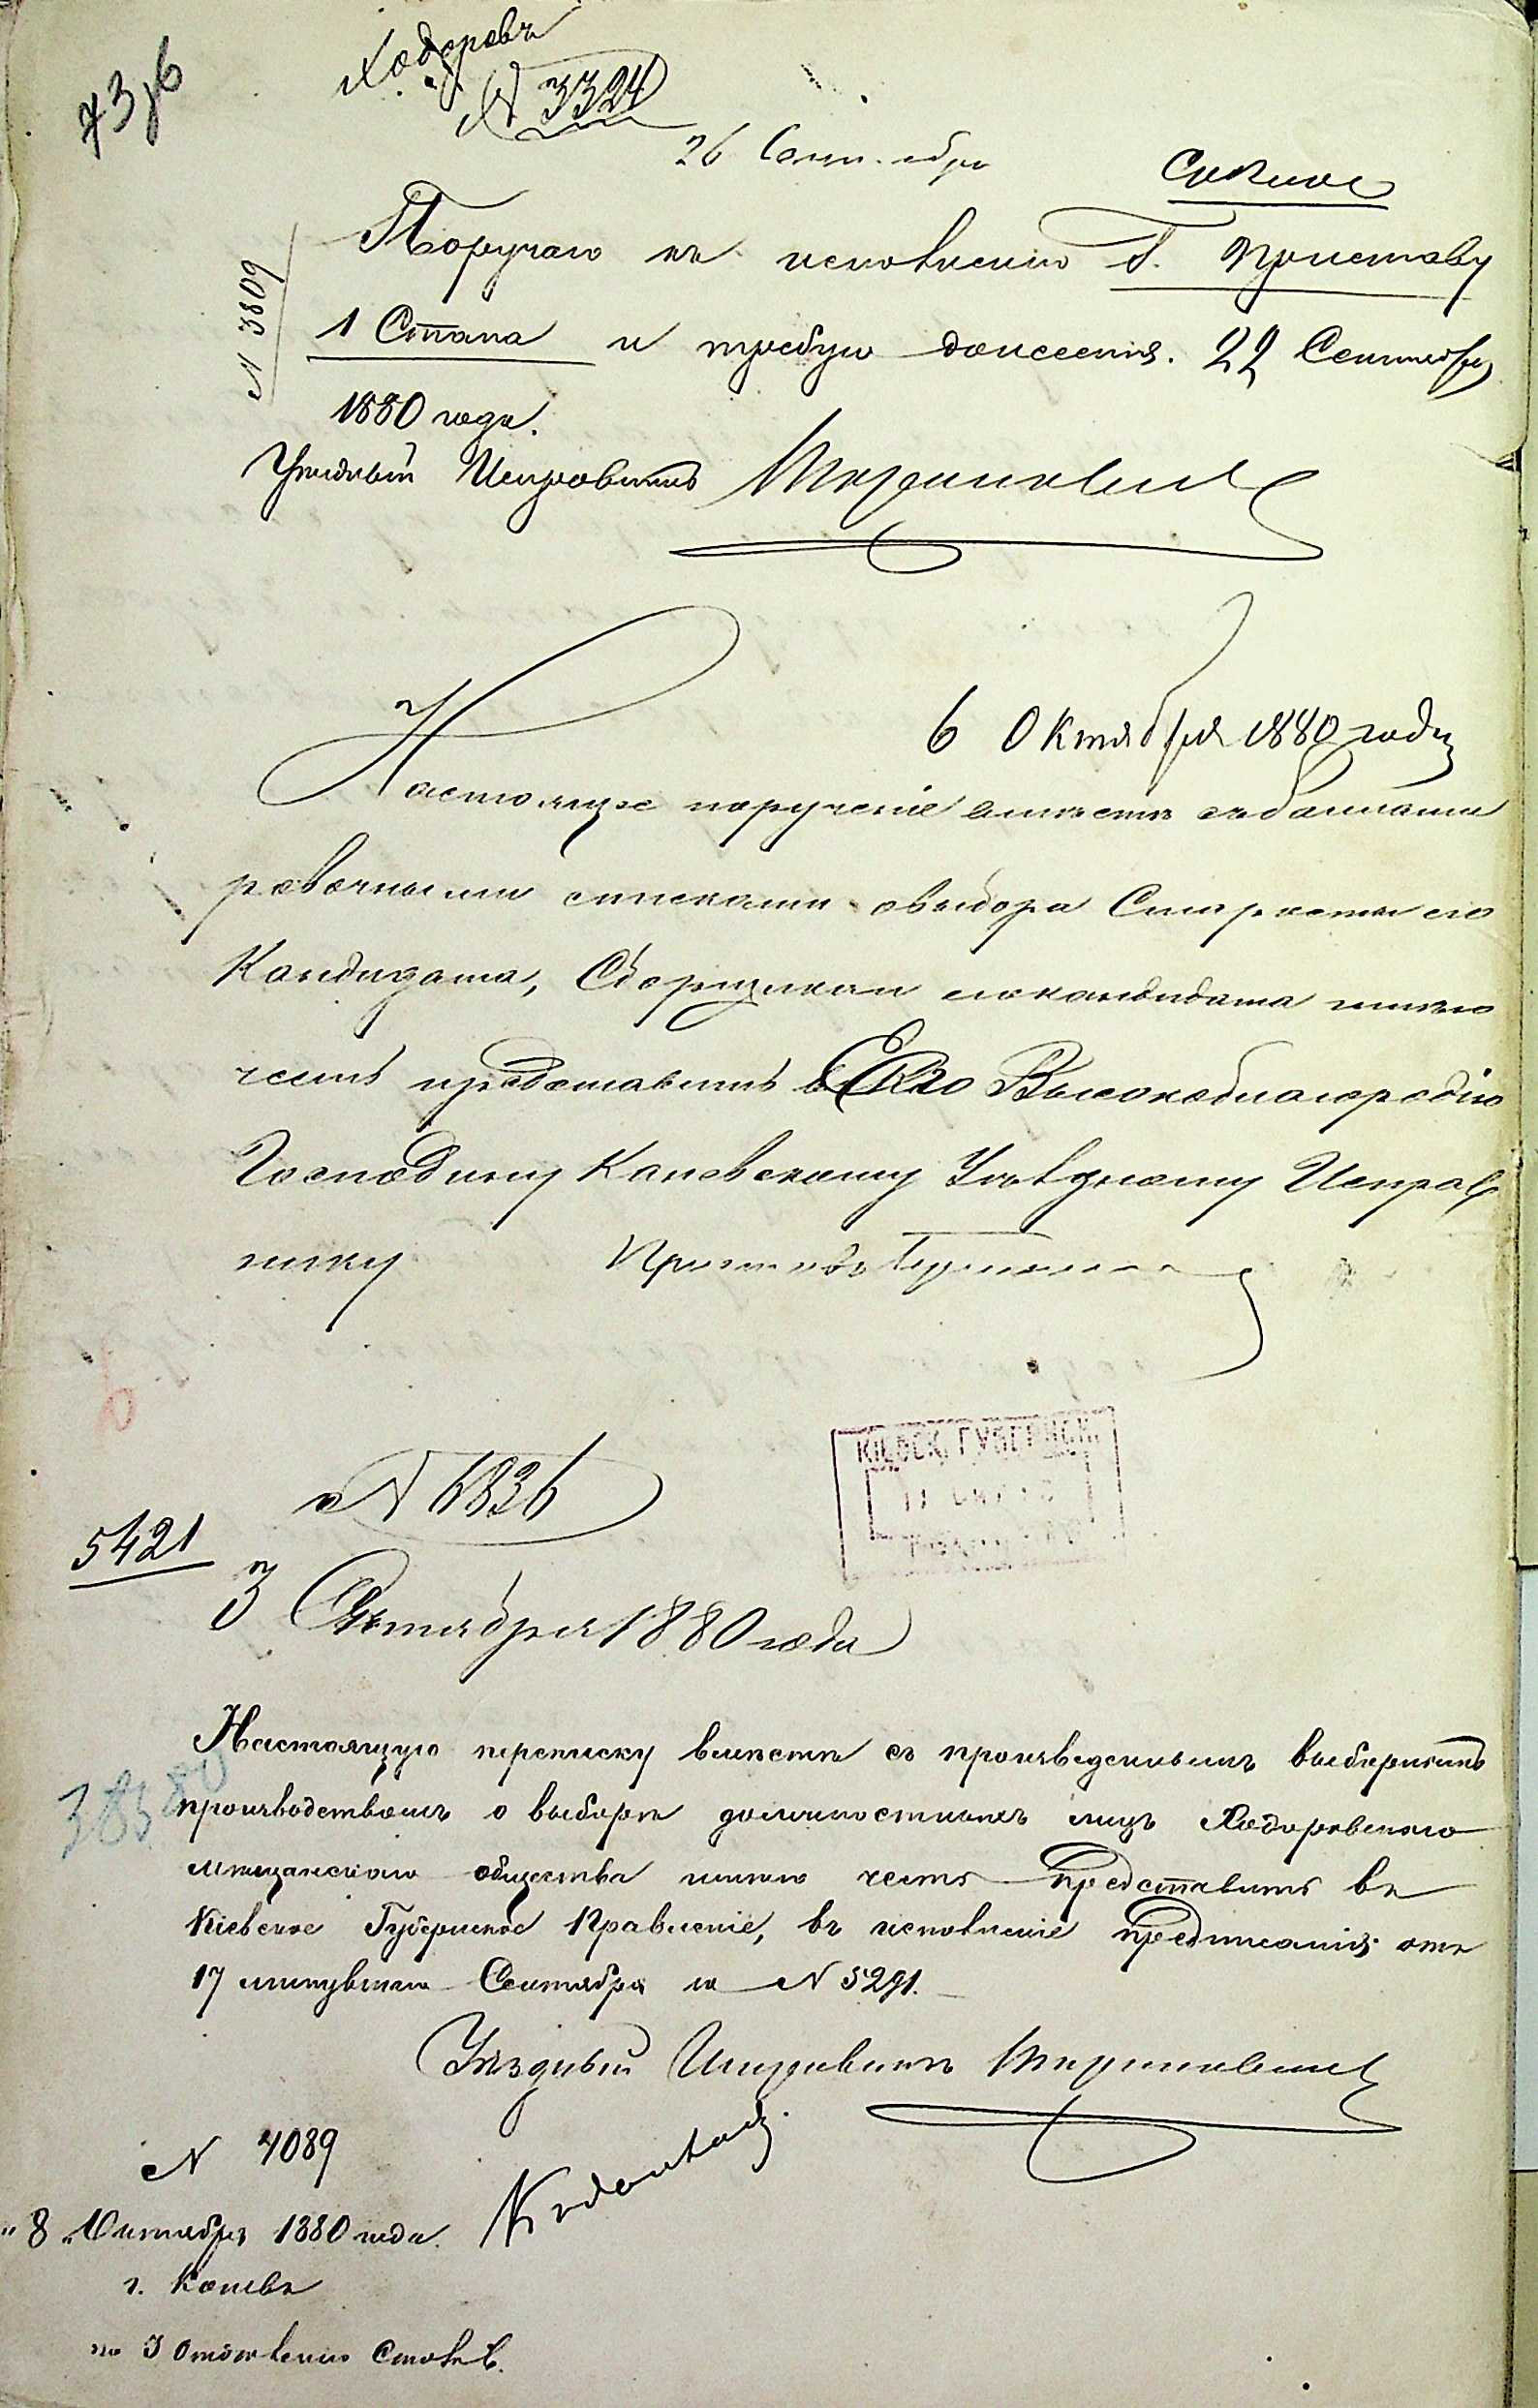 73/6
Ходоровъ
№ 3324
26 Сентября
Срочное
Поручаю къ исполненію Г. Приставу
№ 3809
1 Стана и требую донесенія. 22 Сентября
1880 года.
Уѣздный Исправникъ
6 Октября 1880 года
Настоящее порученіе вмѣстѣ съ баллоти
ровочными списками о выборѣ Старосты его
Кандидата, Сборщика и его кандидата имѣю
честь представить Его Высокоблагородію
Господину Каневскому Уѣздному Исправ
нику Приставъ
КІЕВСК. ГУБЕРНСК.
№ 6836
5421
3 Октября 1880 года
Настоящую переписку вмѣстѣ съ произведеннымъ выборнымъ
38580
производствомъ о выборѣ должностныхъ лицъ Ходоровскаго
мѣщанскаго общества имѣю честь представить въ
Кіевское Губернское Правленіе, въ исполненіе предписанія отъ
17 минувшаго Сентября за № 5291.
Уѣздный Исправникъ
№ 4089
"8" Октября 1880 года.
г. Каневъ
по 3 Отдѣленію Столъ